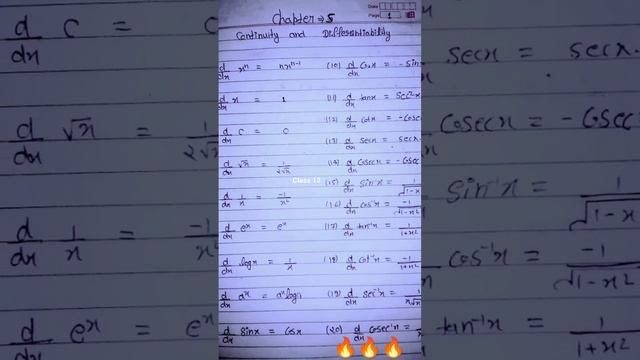 Date
Page 1
Chapter → 5
Continuity and Differentiability
d/dx xⁿ = nxⁿ⁻¹
d/dx x = 1
d/dx c = 0
d/dx √x = 1/2√x
d/dx 1/x = -1/x²
d/dx eˣ = eˣ
d/dx logx = 1/x
d/dx aˣ = aˣ loga
d/dx Sinx = Cosx
(10) d/dx Cosx = - Sin
(11) d/dx tanx = Sec²x
(12) d/dx Cotx = - Cosec
(13) d/dx Secx = Secx
(14) d/dx Cosecx = - Cosec
(15) d/dx Sin⁻¹x = 1/√1-x
(16) d/dx Cos⁻¹x = -1/√1-x²
(17) d/dx tan⁻¹x = 1/1+x²
(18) d/dx Cot⁻¹x = -1/1+x²
(19) d/dx Sec⁻¹x = 1/x√x
(20) d/dx Cosec⁻¹x =
Class 12
d/dx c =
d/dx √x = 1/2√x
d/dx 1/x = -1/x
d/dx eˣ =
secx = secx
Cosecx = - Cosec
Sin⁻¹x = 1/√1-x
Cos⁻¹x = -1/√1-x²
tan⁻¹x = 1/1+x²